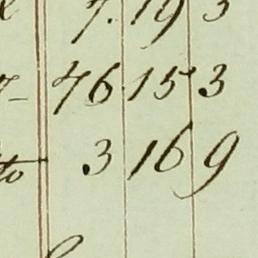 7. 19 3
76. 15 3
to 3 16 9